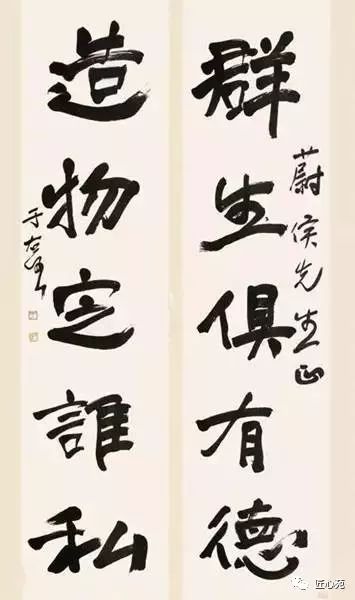 群生俱有德
蔚侯先生正
造物定誰私
于右任
匠心苑